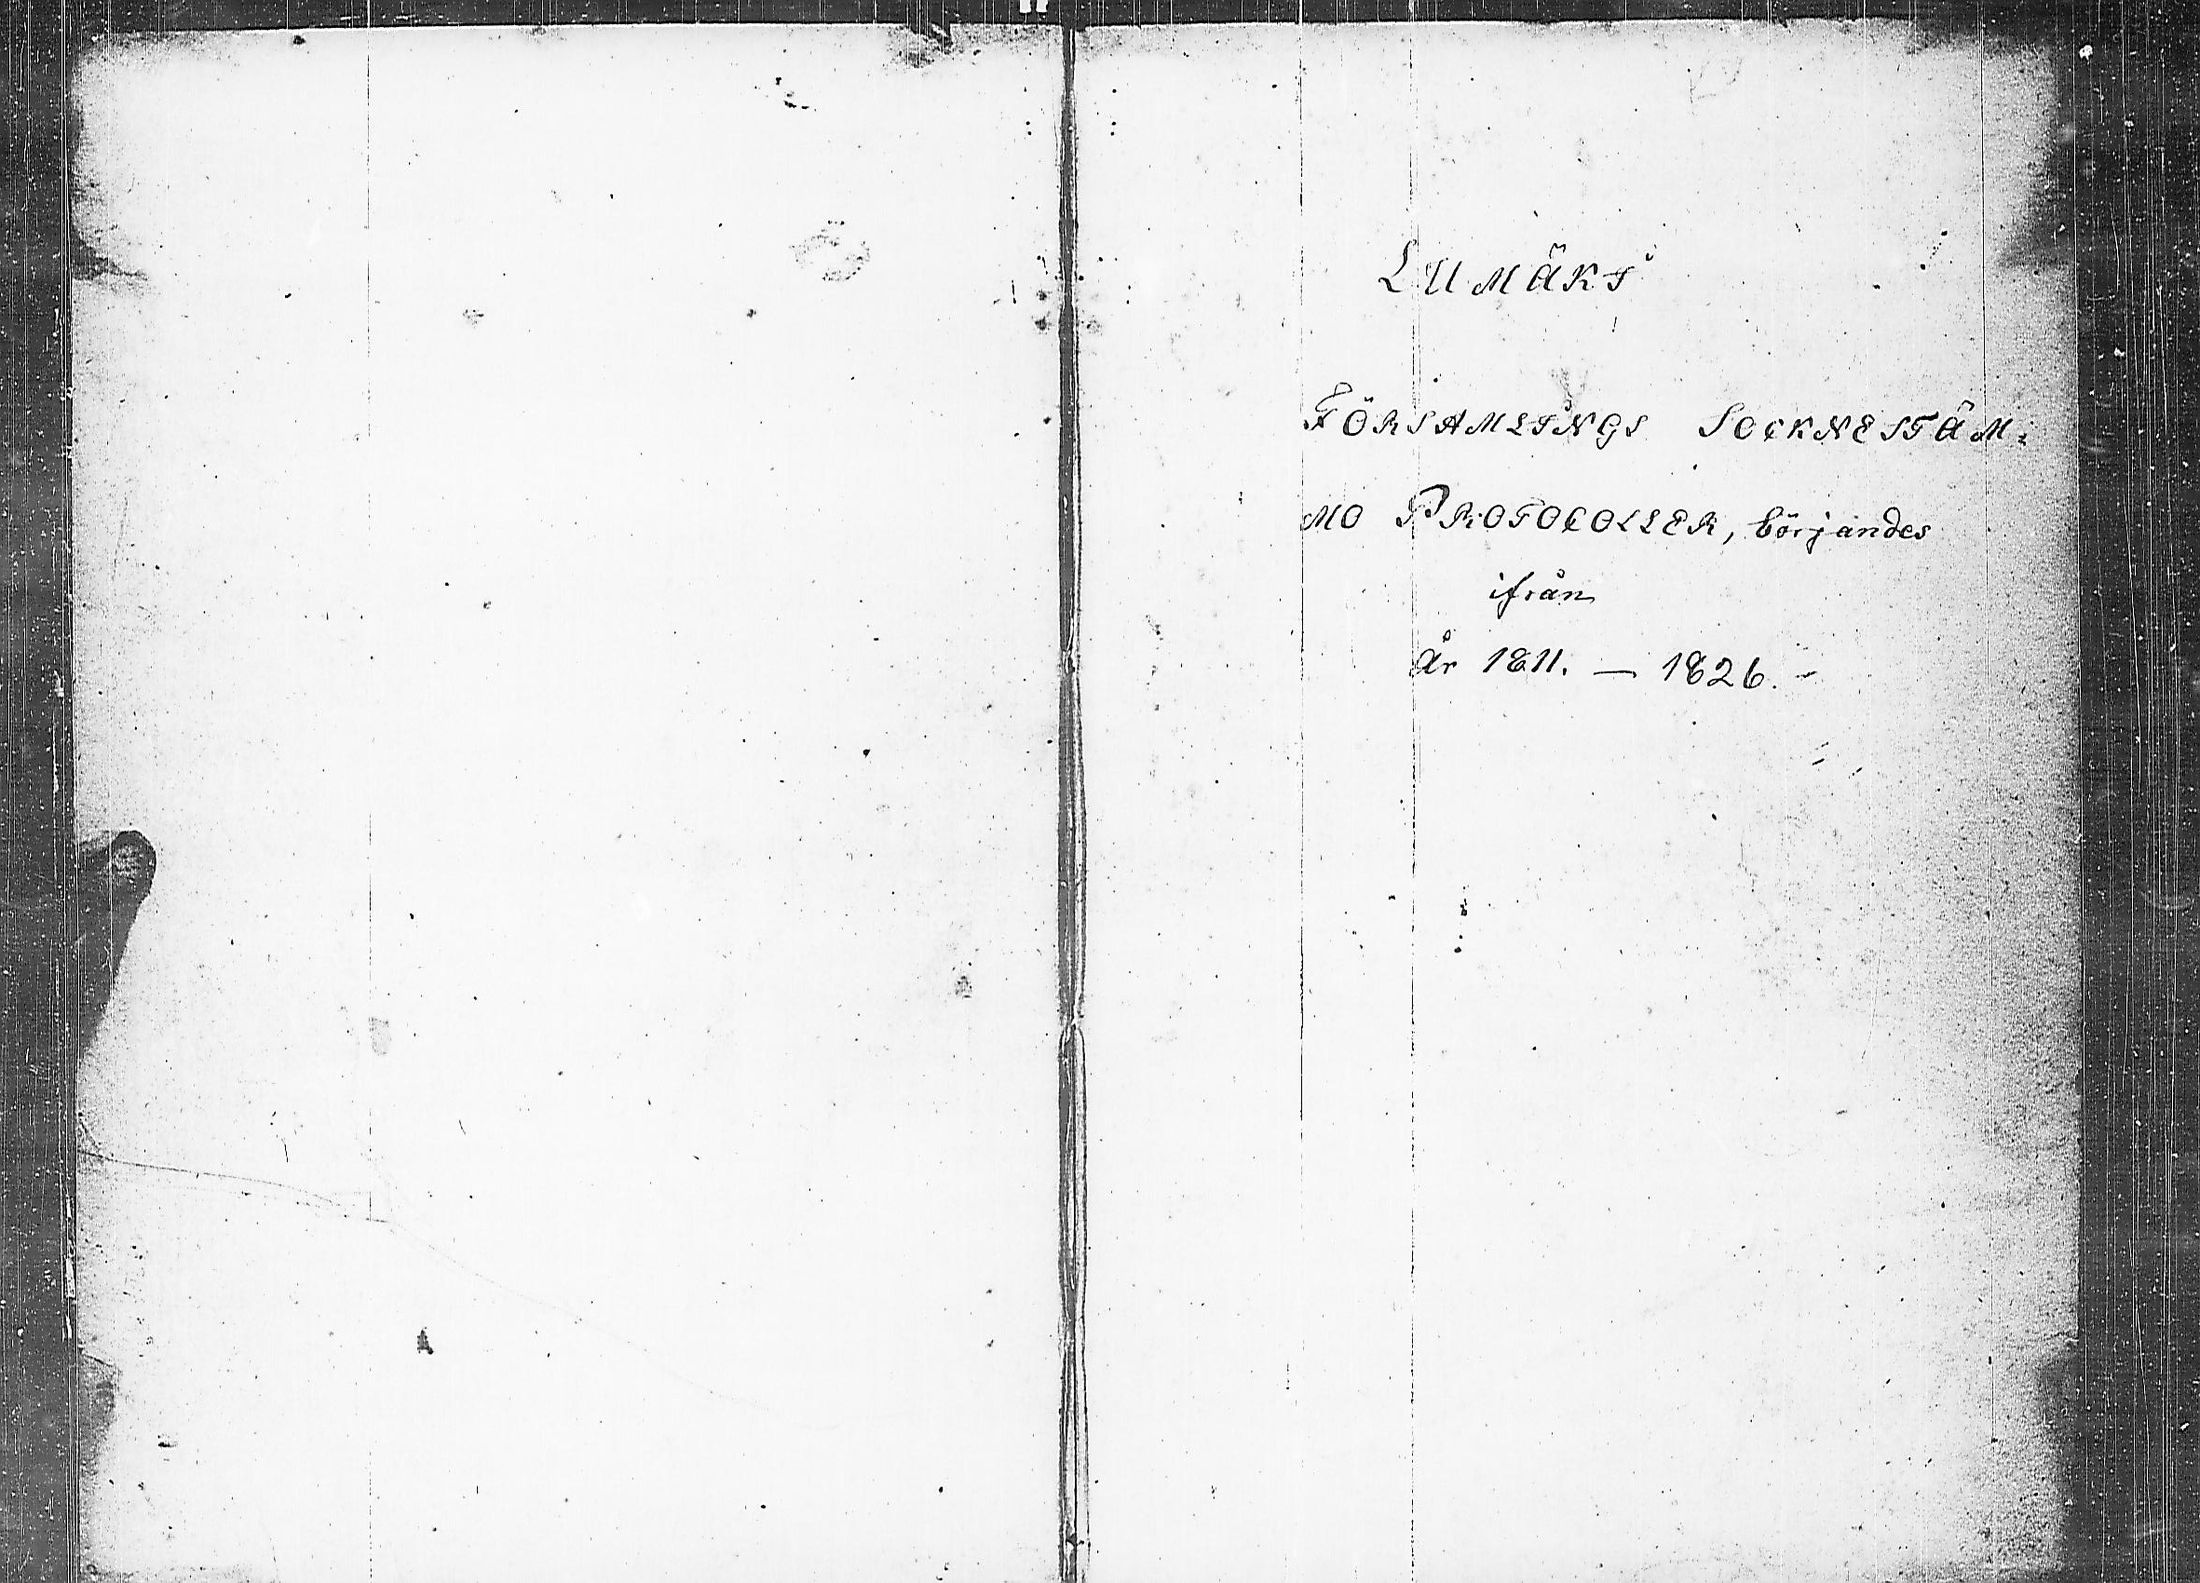 LUMÄKI
FÖRSAMLINGS SOCKNESTÄM:
MO PROTOCOLLER, börjandes
ifrån
År 1811. — 1826.